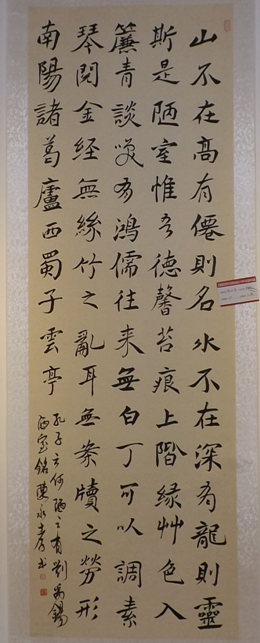 山不在高有僊則名水不在深有龍則靈
斯是陋室惟吾德馨苔痕上階緑艸色入
簾青談咲有鴻儒往来無白丁可以調素
琴閱金経無絲竹之亂耳無案牘之勞形
南陽諸葛廬西蜀子雲亭
孔子云何陋之有劉禹錫
陋室銘陳永